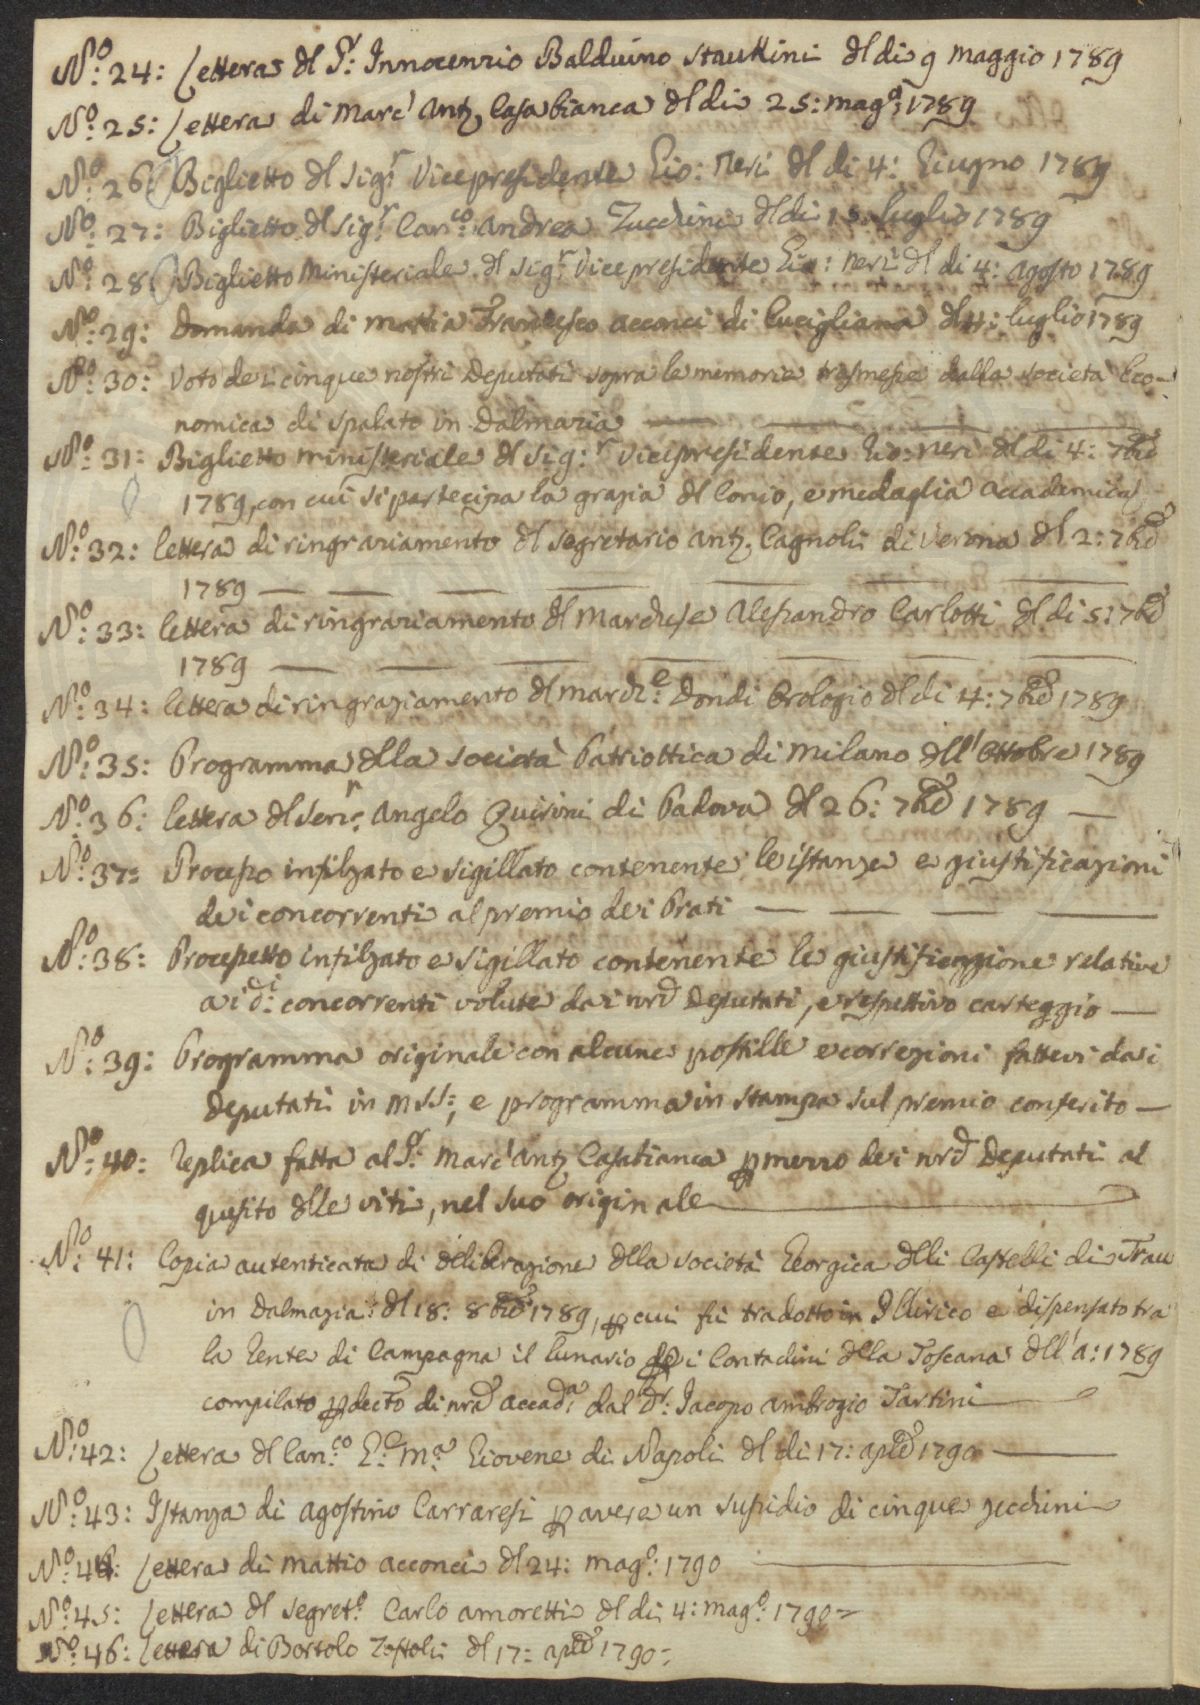 N.o 24: Lettera dl S.r Innocenzio Balduino Stauttini dl di 9 Maggio 1789
N.o 25: Lettera di Marc' Ant.o Casabianca dl di 25: Mag.o 1789
N.o 26: Biglietto dl Sig.r Vicepresidente Gio: Neri dl di 4: Giugno 1789
N.o 27: Biglietto dl Sig.r Can.co Andrea Zucchini dl di 15 luglio 1789
N.o 28: Biglietto Ministeriale dl Sig.r Vicepresidente Gio: Neri dl di 4: Agosto 1789
N.o 29: Domanda di Mattia Francesco Acconci di Lucigliana dl 4: luglio 1789
N.o 30: Voto dei cinque nostri Deputati sopra le memorie trasmesse dalla società Eco-
nomica di Spalato in Dalmazia
N.o 31: Biglietto ministeriale dl Sig:r Vicepresidente Gio: Neri dl di 4: 7bre
1789, con cui si partecipa la grazia dl Conio, e medaglia Accademica
N.o 32: lettera di ringraziamento dl segretario Ant.o Cagnoli di Verona dl 2: 7bre
1789
N.o 33: lettera di ringraziamento dl Marchese Alessandro Carlotti dl di 5: 7bre
1789
N.o 34: lettera di ringraziamento dl March.e Dondi Orologio dl di 4: 7bre 1789
N.o 35: Programma dlla società Patriottica di Milano dll' Ottobre 1789
N.o 36: lettera dl Sen.r Angelo Quirini di Padova dl 26: 7bre 1789
N.o 37: Processo infilzato e sigillato contenente le istanze e giustificazioni
dei concorrenti al premio dei Prati
N.o 38: Processetto infilzato e sigillato contenente le giustificazione relative
ai d.i concorrenti volute dai nri Deputati, e respettivo carteggio
N.o 39: Programma originale con alcune postille e correzioni fattevi dai
Deputati in MSS:, e programma in stampa sul premio conferito
N.o 40: Replica fatta al S.r Marc' Ant.o Casabianca p mezzo dei nri Deputati al
quesito dlle viti, nel suo originale
N.o 41: Copia autenticata di deliberazione dlla società Georgica dlli Castelli di Trau
in Dalmazia dl 18: 8bre 1789, p cui fu tradotto in Illirico e dispensato tra
la Gente di Campagna il lunario p i Contadini dlla Toscana dll' a: 1789
compilato p decto di nra Accad.a dal D.r Jacopo Ambrogio Tartini
N.o 42: Lettera dl Can.co G.e M.a Giovene di Napoli dl di 17: aple 1790
N.o 43: Istanza di Agostino Carraresi p avere un sussidio di cinque zecchini
N.o 44: Lettera di Mattio Acconci dl 24: Mag.o 1790
N.o 45: Lettera dl Segret.o Carlo Amoretti dl di 4: Mag.o 1790
N.o 46: Lettera di Bortolo Zostoli dl 17: aple 1790